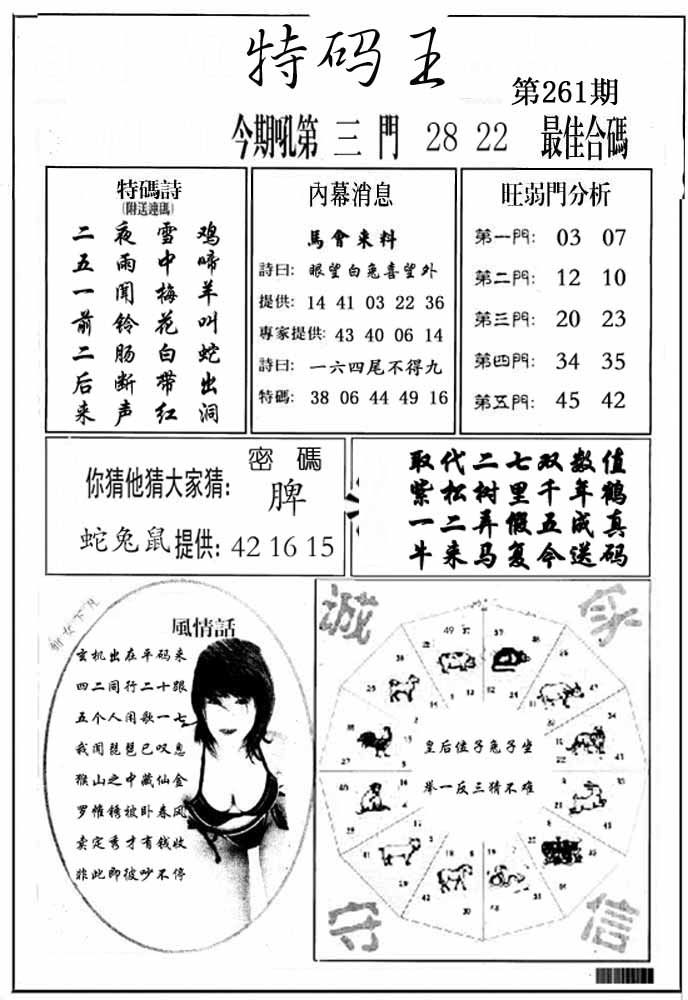 特码王
第261期
今期吼第 三門 28 22 最佳合碼
特碼詩
(附送連碼)
二夜雪鸡
五雨中啼
一闻梅羊
前铃花叫
二肠白蛇
后断带出
来声红洞
內幕消息
馬會来料
詩曰: 眼望白兔喜望外
提供: 14 41 03 22 36
專家提供: 43 40 06 14
詩曰: 一六四尾不得九
特碼: 38 06 44 49 16
旺弱門分析
第一門: 03 07
第二門: 12 10
第三門: 20 23
第四門: 34 35
第五門: 45 42
密碼
你猜他猜大家猜: 脾
蛇兔鼠提供: 42 16 15
取代二七双数值
紫松树里千年鹤
一二弄假五成真
牛来马复今送码
風情話
玄机出在平码来
四二同行二十跟
五个人闲歌一七
我闻琵琶已叹息
猴山之中藏仙金
罗帷锈被卧春风
卖定秀才有钱收
非此即彼吵不停
诚
守
信
49 37
皇后位子兔子坐
举一反三猜不难